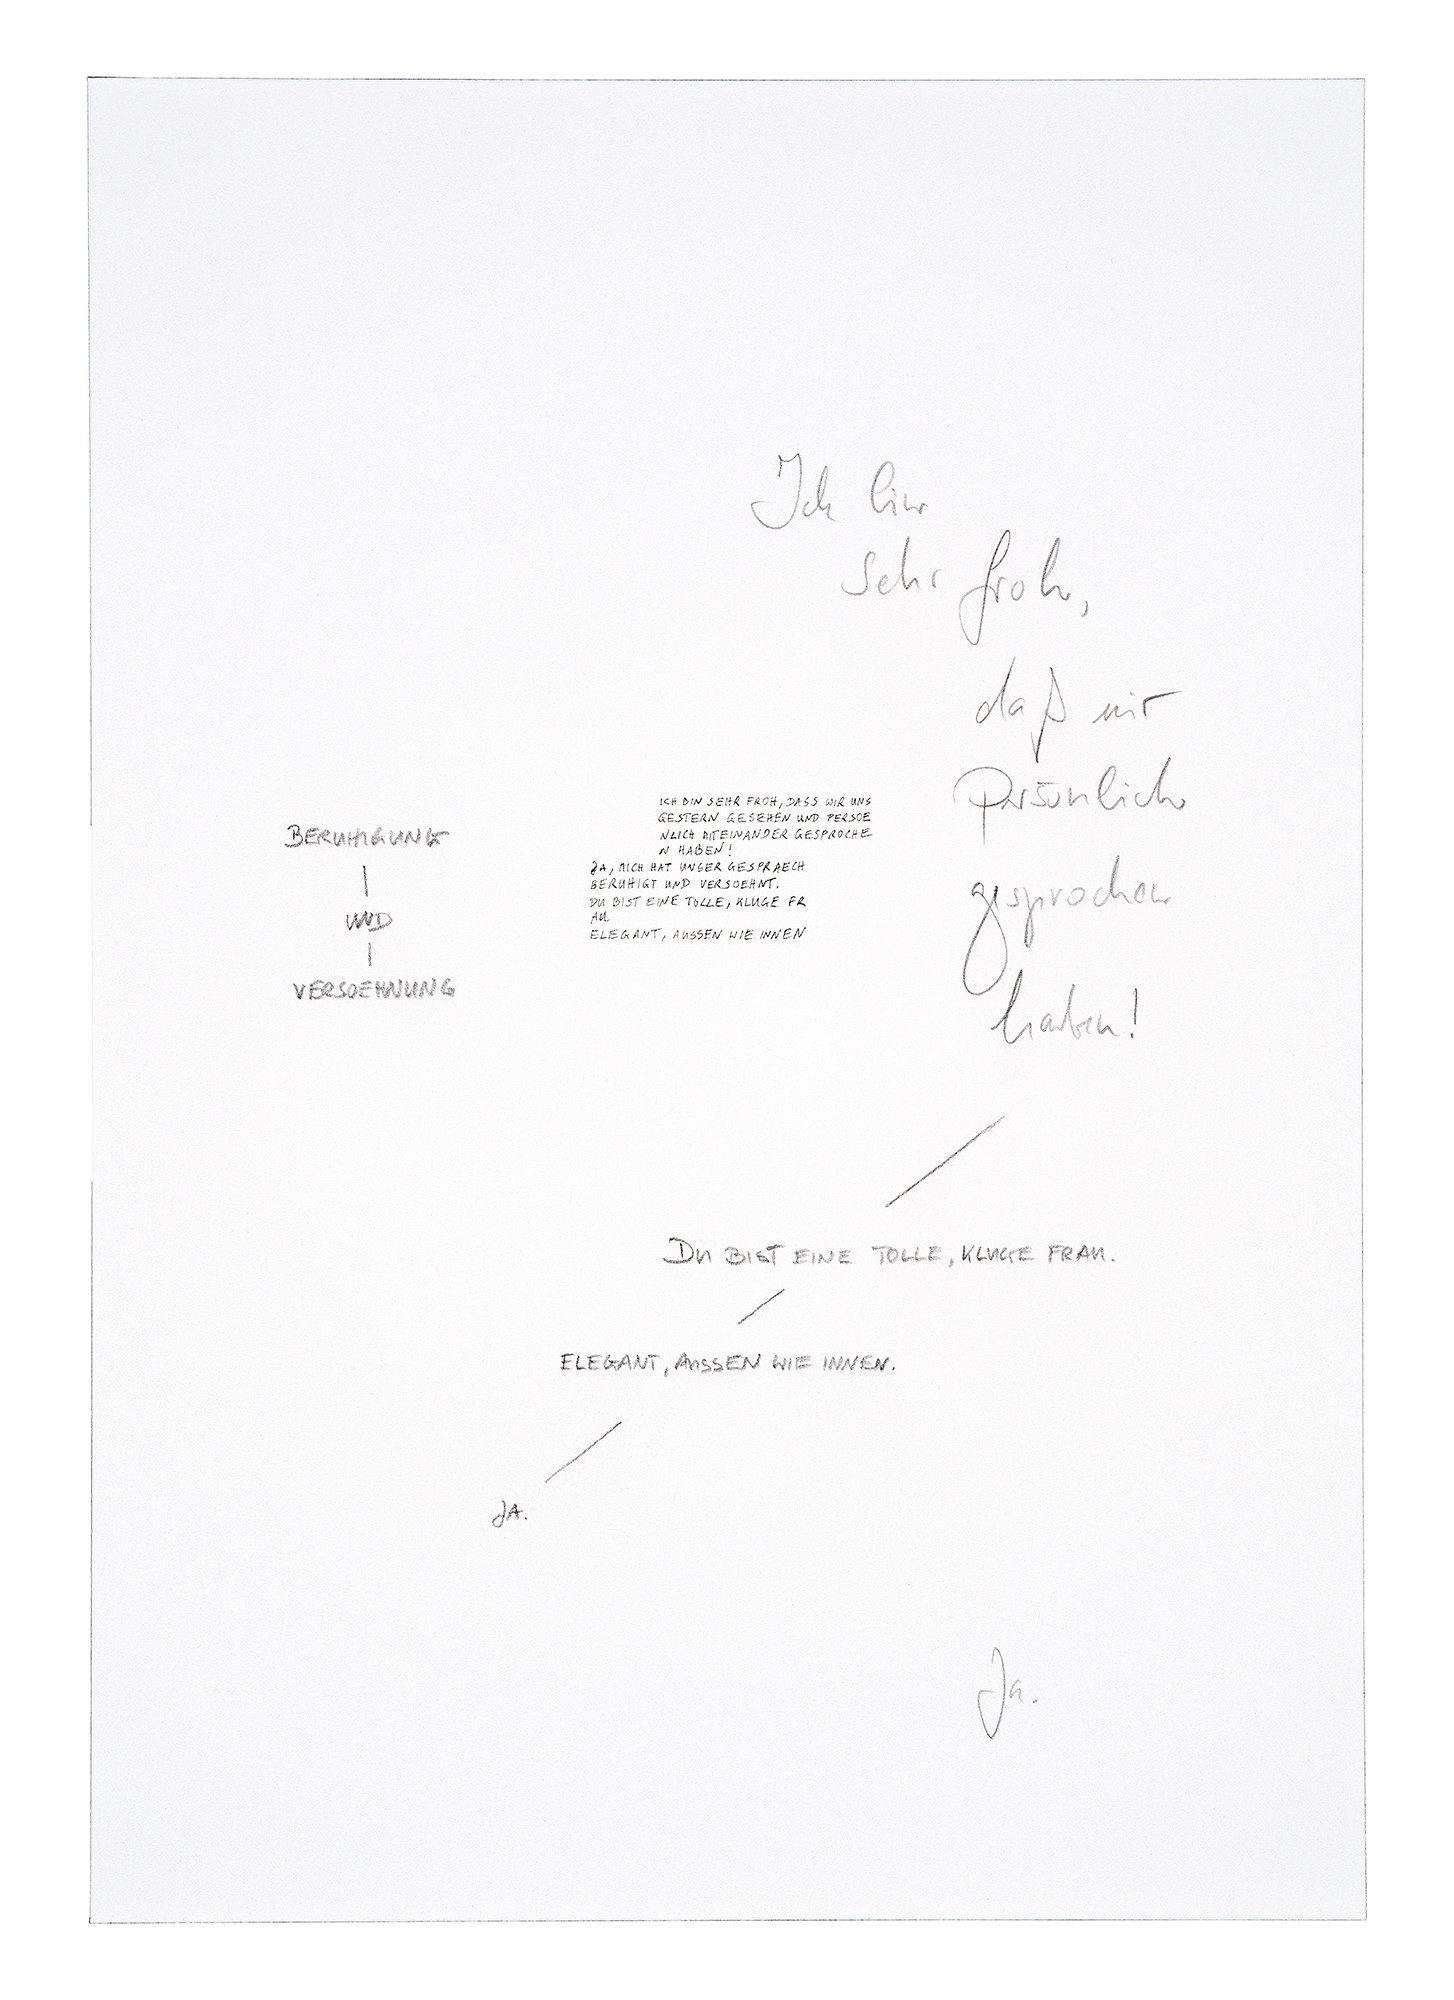 Ich bin
sehr froh,
daß wir
persönlich
gesprochen
haben!
BERUHIGUNG
UND
VERSOEHNUNG
ICH BIN SEHR FROH, DASS WIR UNS
GESTERN GESEHEN UND PERSOE
NLICH MITEINANDER GESPROCHE
N HABEN!
JA, MICH HAT UNSER GESPRAECH
BERUHIGT UND VERSOEHNT.
DU BIST EINE TOLLE, KLUGE FR
AU
ELEGANT, AUSSEN WIE INNEN
DU BIST EINE TOLLE, KLUGE FRAU.
ELEGANT, AUSSEN WIE INNEN.
JA.
Ja.